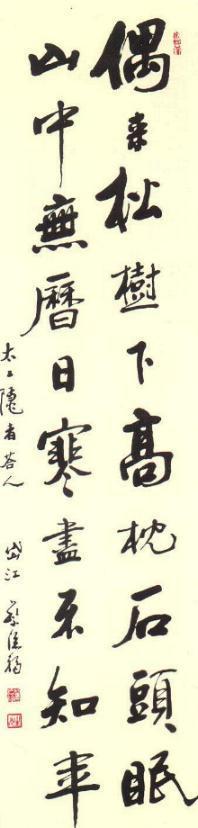 偶來松樹下高枕石頭眠
山中無曆日寒盡不知年
太上隱者答人
岱江